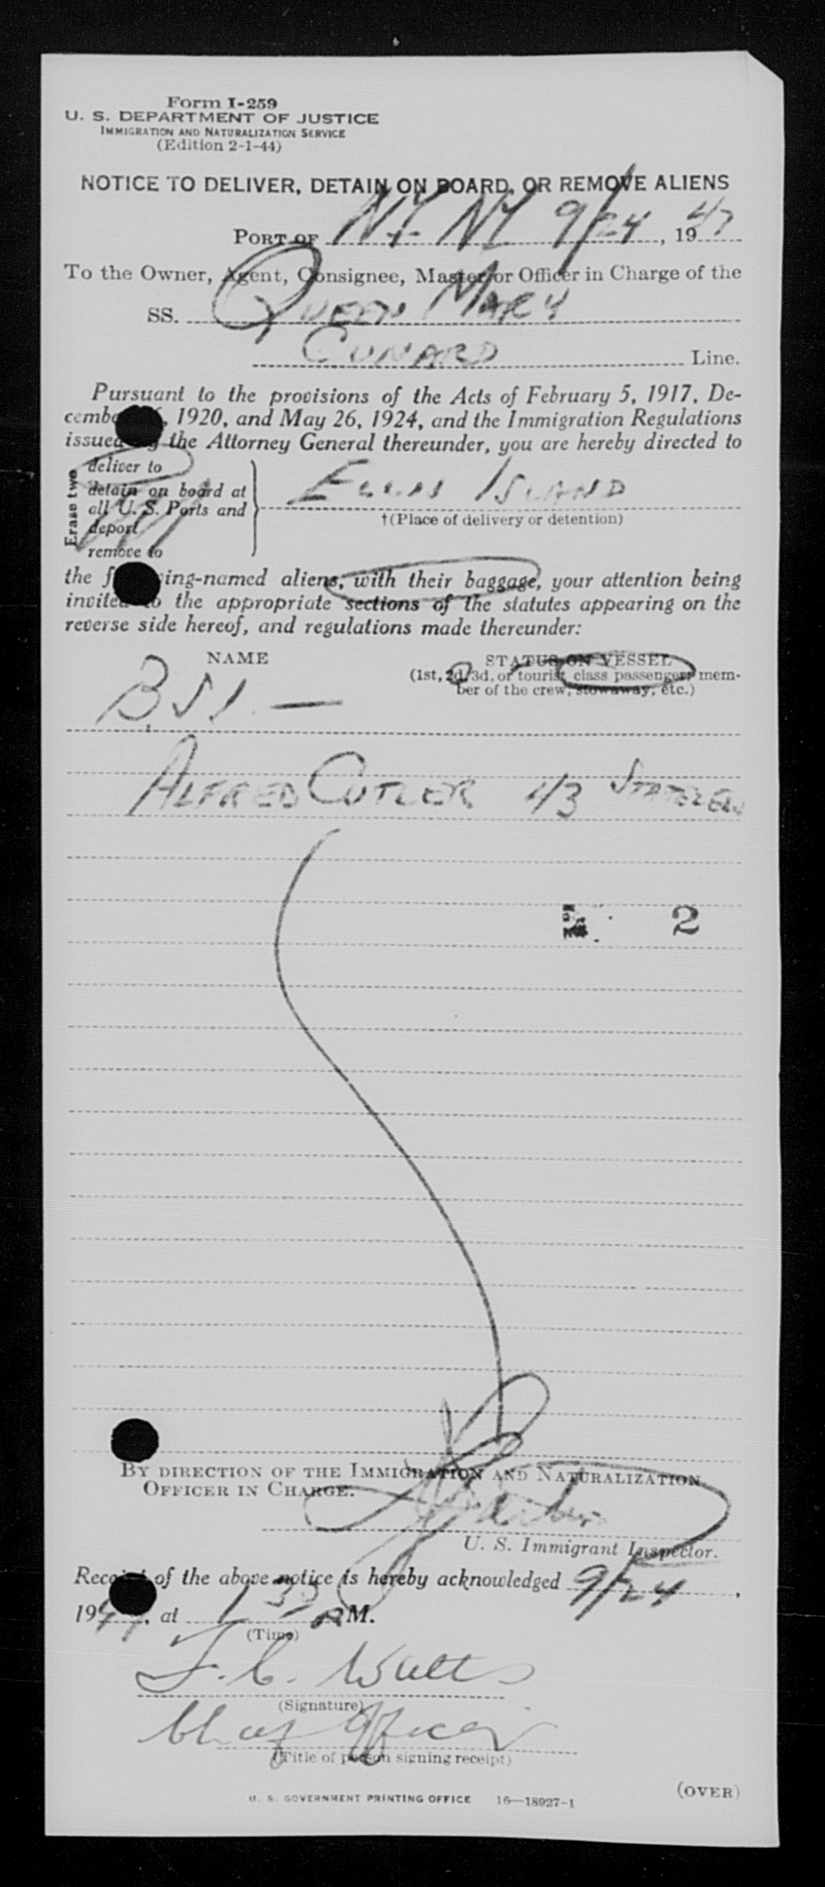 Form I-259
U. S. DEPARTMENT OF JUSTICE
IMMIGRATION AND NATURALIZATION SERVICE
(Edition 2-1-44)
NOTICE TO DELIVER, DETAIN ON BOARD, OR REMOVE ALIENS
PORT OF N.Y. NY 9/24, 1947
To the Owner, Agent, Consignee, Master or Officer in Charge of the
SS. QUEEN MARY
CUNARD Line.
Pursuant to the provisions of the Acts of February 5, 1917, De-
cember 26, 1920, and May 26, 1924, and the Immigration Regulations
issued by the Attorney General thereunder, you are hereby directed to
Erase two
deliver to
detain on board at
all U. S. Ports and
deport
remove to
ELLIS ISLAND
†(Place of delivery or detention)
the following-named aliens, with their baggage, your attention being
invited to the appropriate sections of the statutes appearing on the
reverse side hereof, and regulations made thereunder:
NAME
STATUS ON VESSEL
(1st, 2d, 3d, or tourist class passenger, mem-
ber of the crew, stowaway, etc.)
BSI —
ALFRED CUTLER 4/3
2
BY DIRECTION OF THE IMMIGRATION AND NATURALIZATION
OFFICER IN CHARGE.
U. S. Immigrant Inspector.
Receipt of the above notice is hereby acknowledged 9/24,
1947, at 1 30 PM.
(Time)
(Signature)
Chief Officer
(Title of person signing receipt)
U. S. GOVERNMENT PRINTING OFFICE 16—18927-1
(OVER)